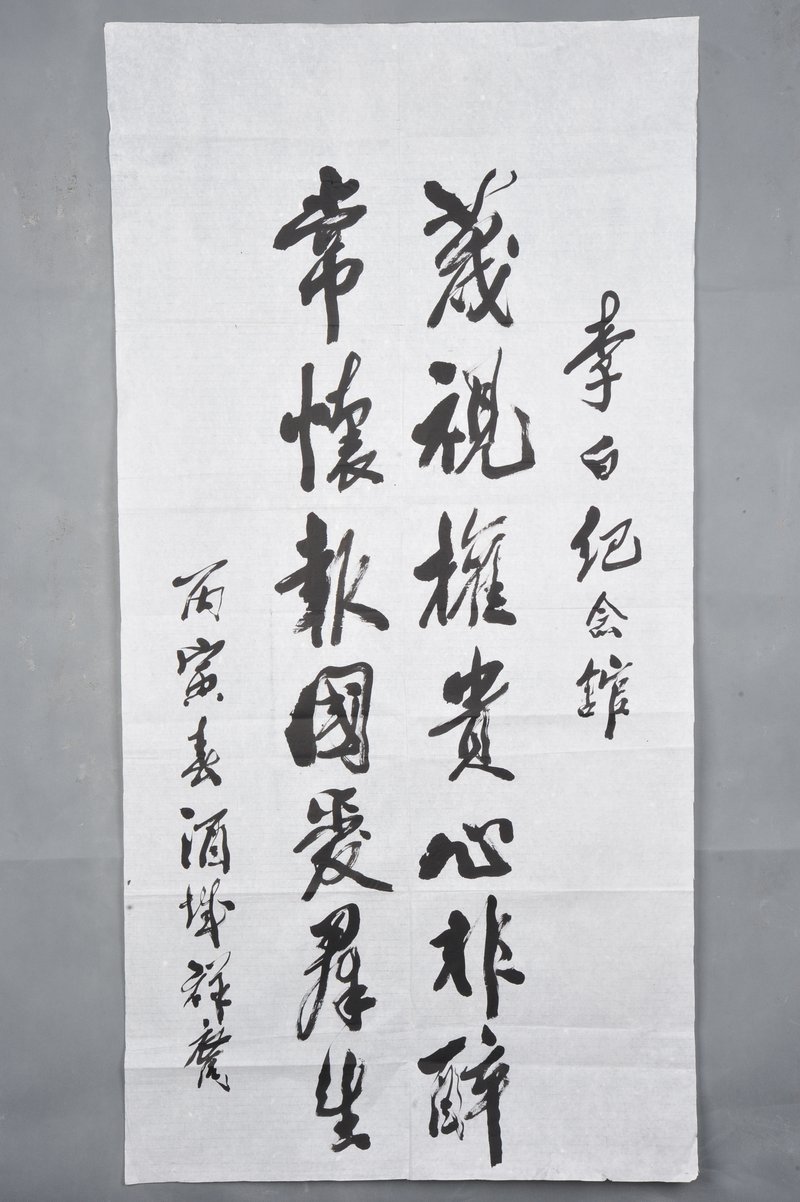 李白纪念舘
蔑視權貴心非醉
常懷報國愛群生
丙寅春酒城祥麐